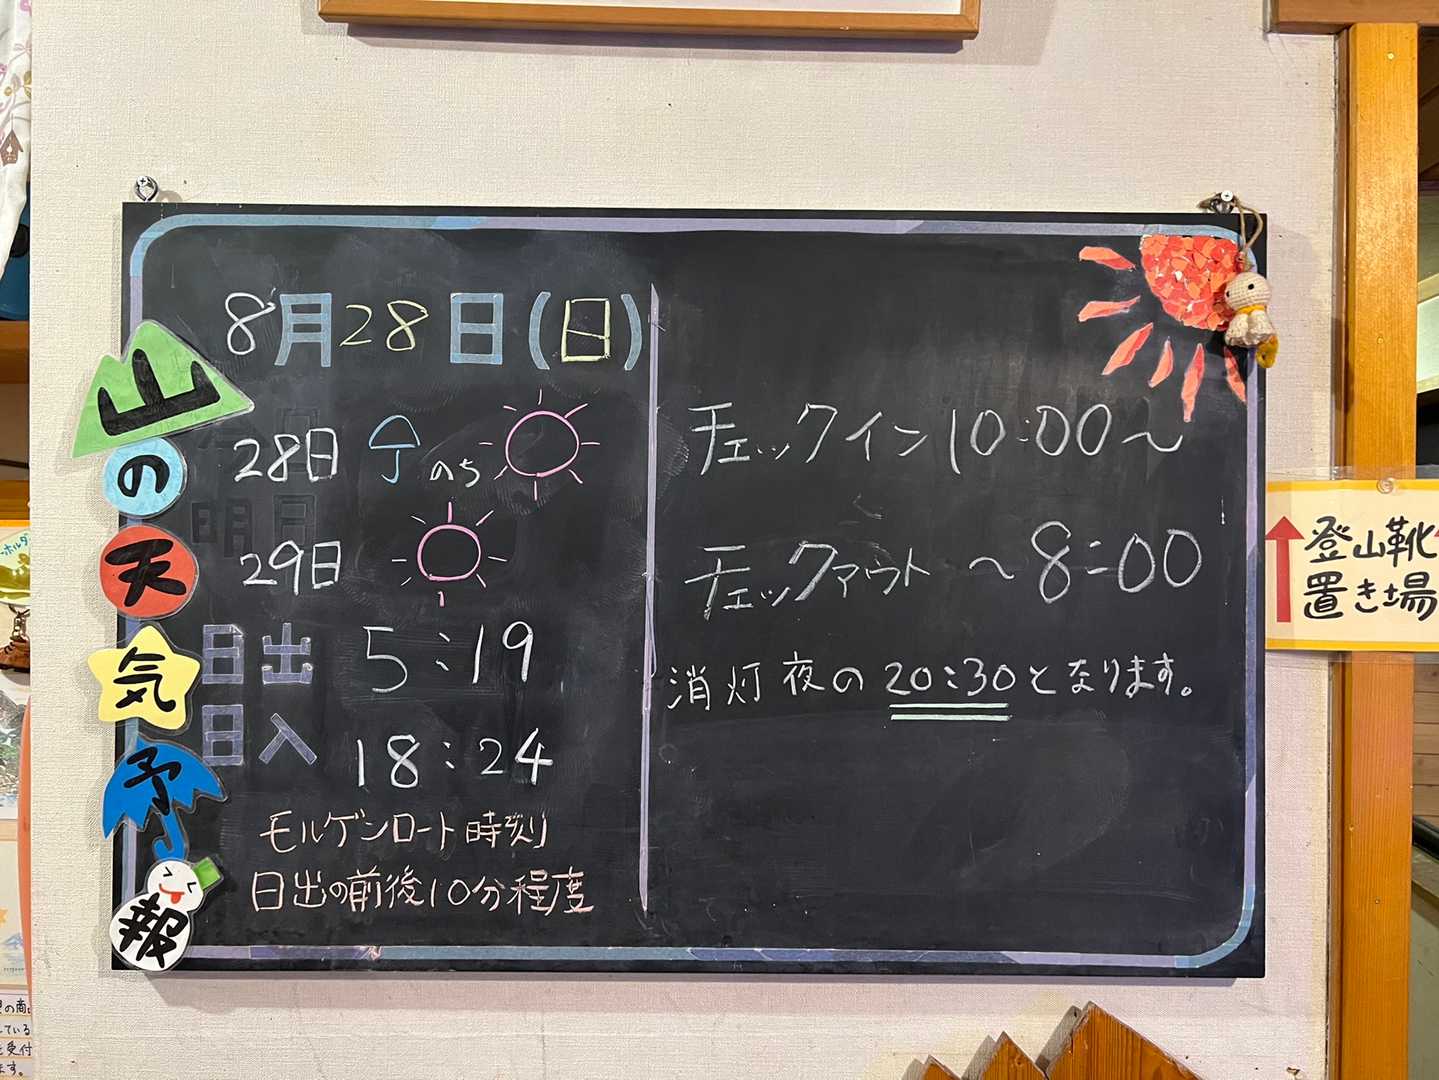 山の天気予報
8月28日(日)
28日 のち
29日
日出 5:19
日入 18:24
モルゲンロート時刻
日出の前後10分程度
チェックイン10:00〜
チェックアウト 〜8:00
消灯夜の20:30となります。
登山靴
置き場